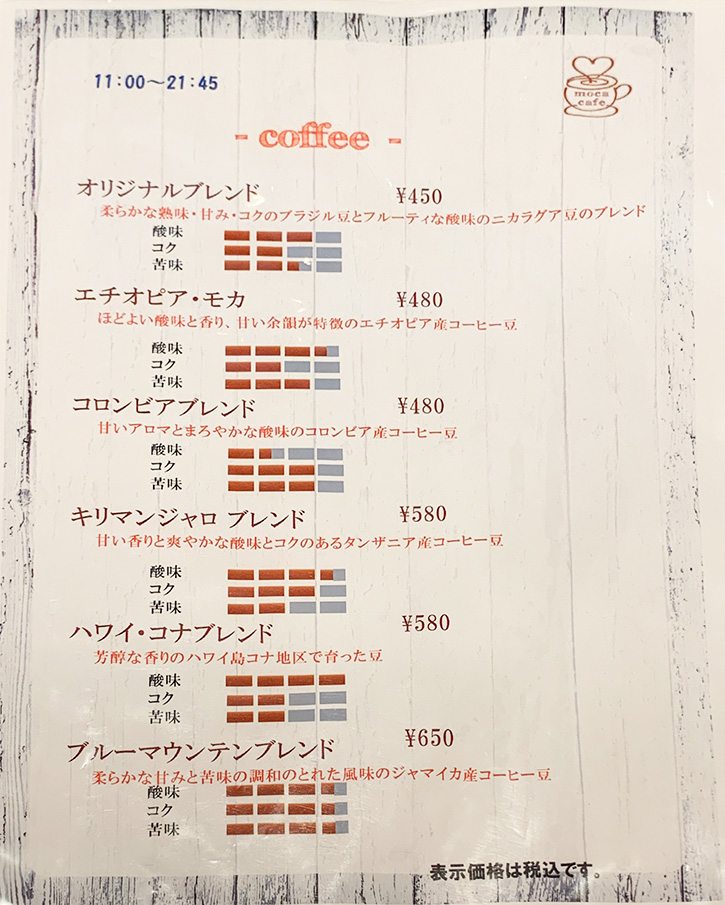 11:00～21:45
moca
cafe
- coffee -
オリジナルブレンド ¥450
柔らかな熟味・甘み・コクのブラジル豆とフルーティな酸味のニカラグア豆のブレンド
酸味
コク
苦味
エチオピア・モカ ¥480
ほどよい酸味と香り、甘い余韻が特徴のエチオピア産コーヒー豆
酸味
コク
苦味
コロンビアブレンド ¥480
甘いアロマとまろやかな酸味のコロンビア産コーヒー豆
酸味
コク
苦味
キリマンジャロ ブレンド ¥580
甘い香りと爽やかな酸味とコクのあるタンザニア産コーヒー豆
酸味
コク
苦味
ハワイ・コナブレンド ¥580
芳醇な香りのハワイ島コナ地区で育った豆
酸味
コク
苦味
ブルーマウンテンブレンド ¥650
柔らかな甘みと苦味の調和のとれた風味のジャマイカ産コーヒー豆
酸味
コク
苦味
表示価格は税込です。